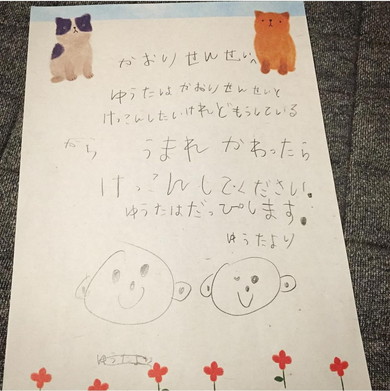 かおりせんせいへ
ゆうたはかおりせんせいと
けっこんしたいけれどもうしている
から うまれ かわったら
けっこんしてください。
ゆうたはだっぴします。
ゆうたより
ゆうたより